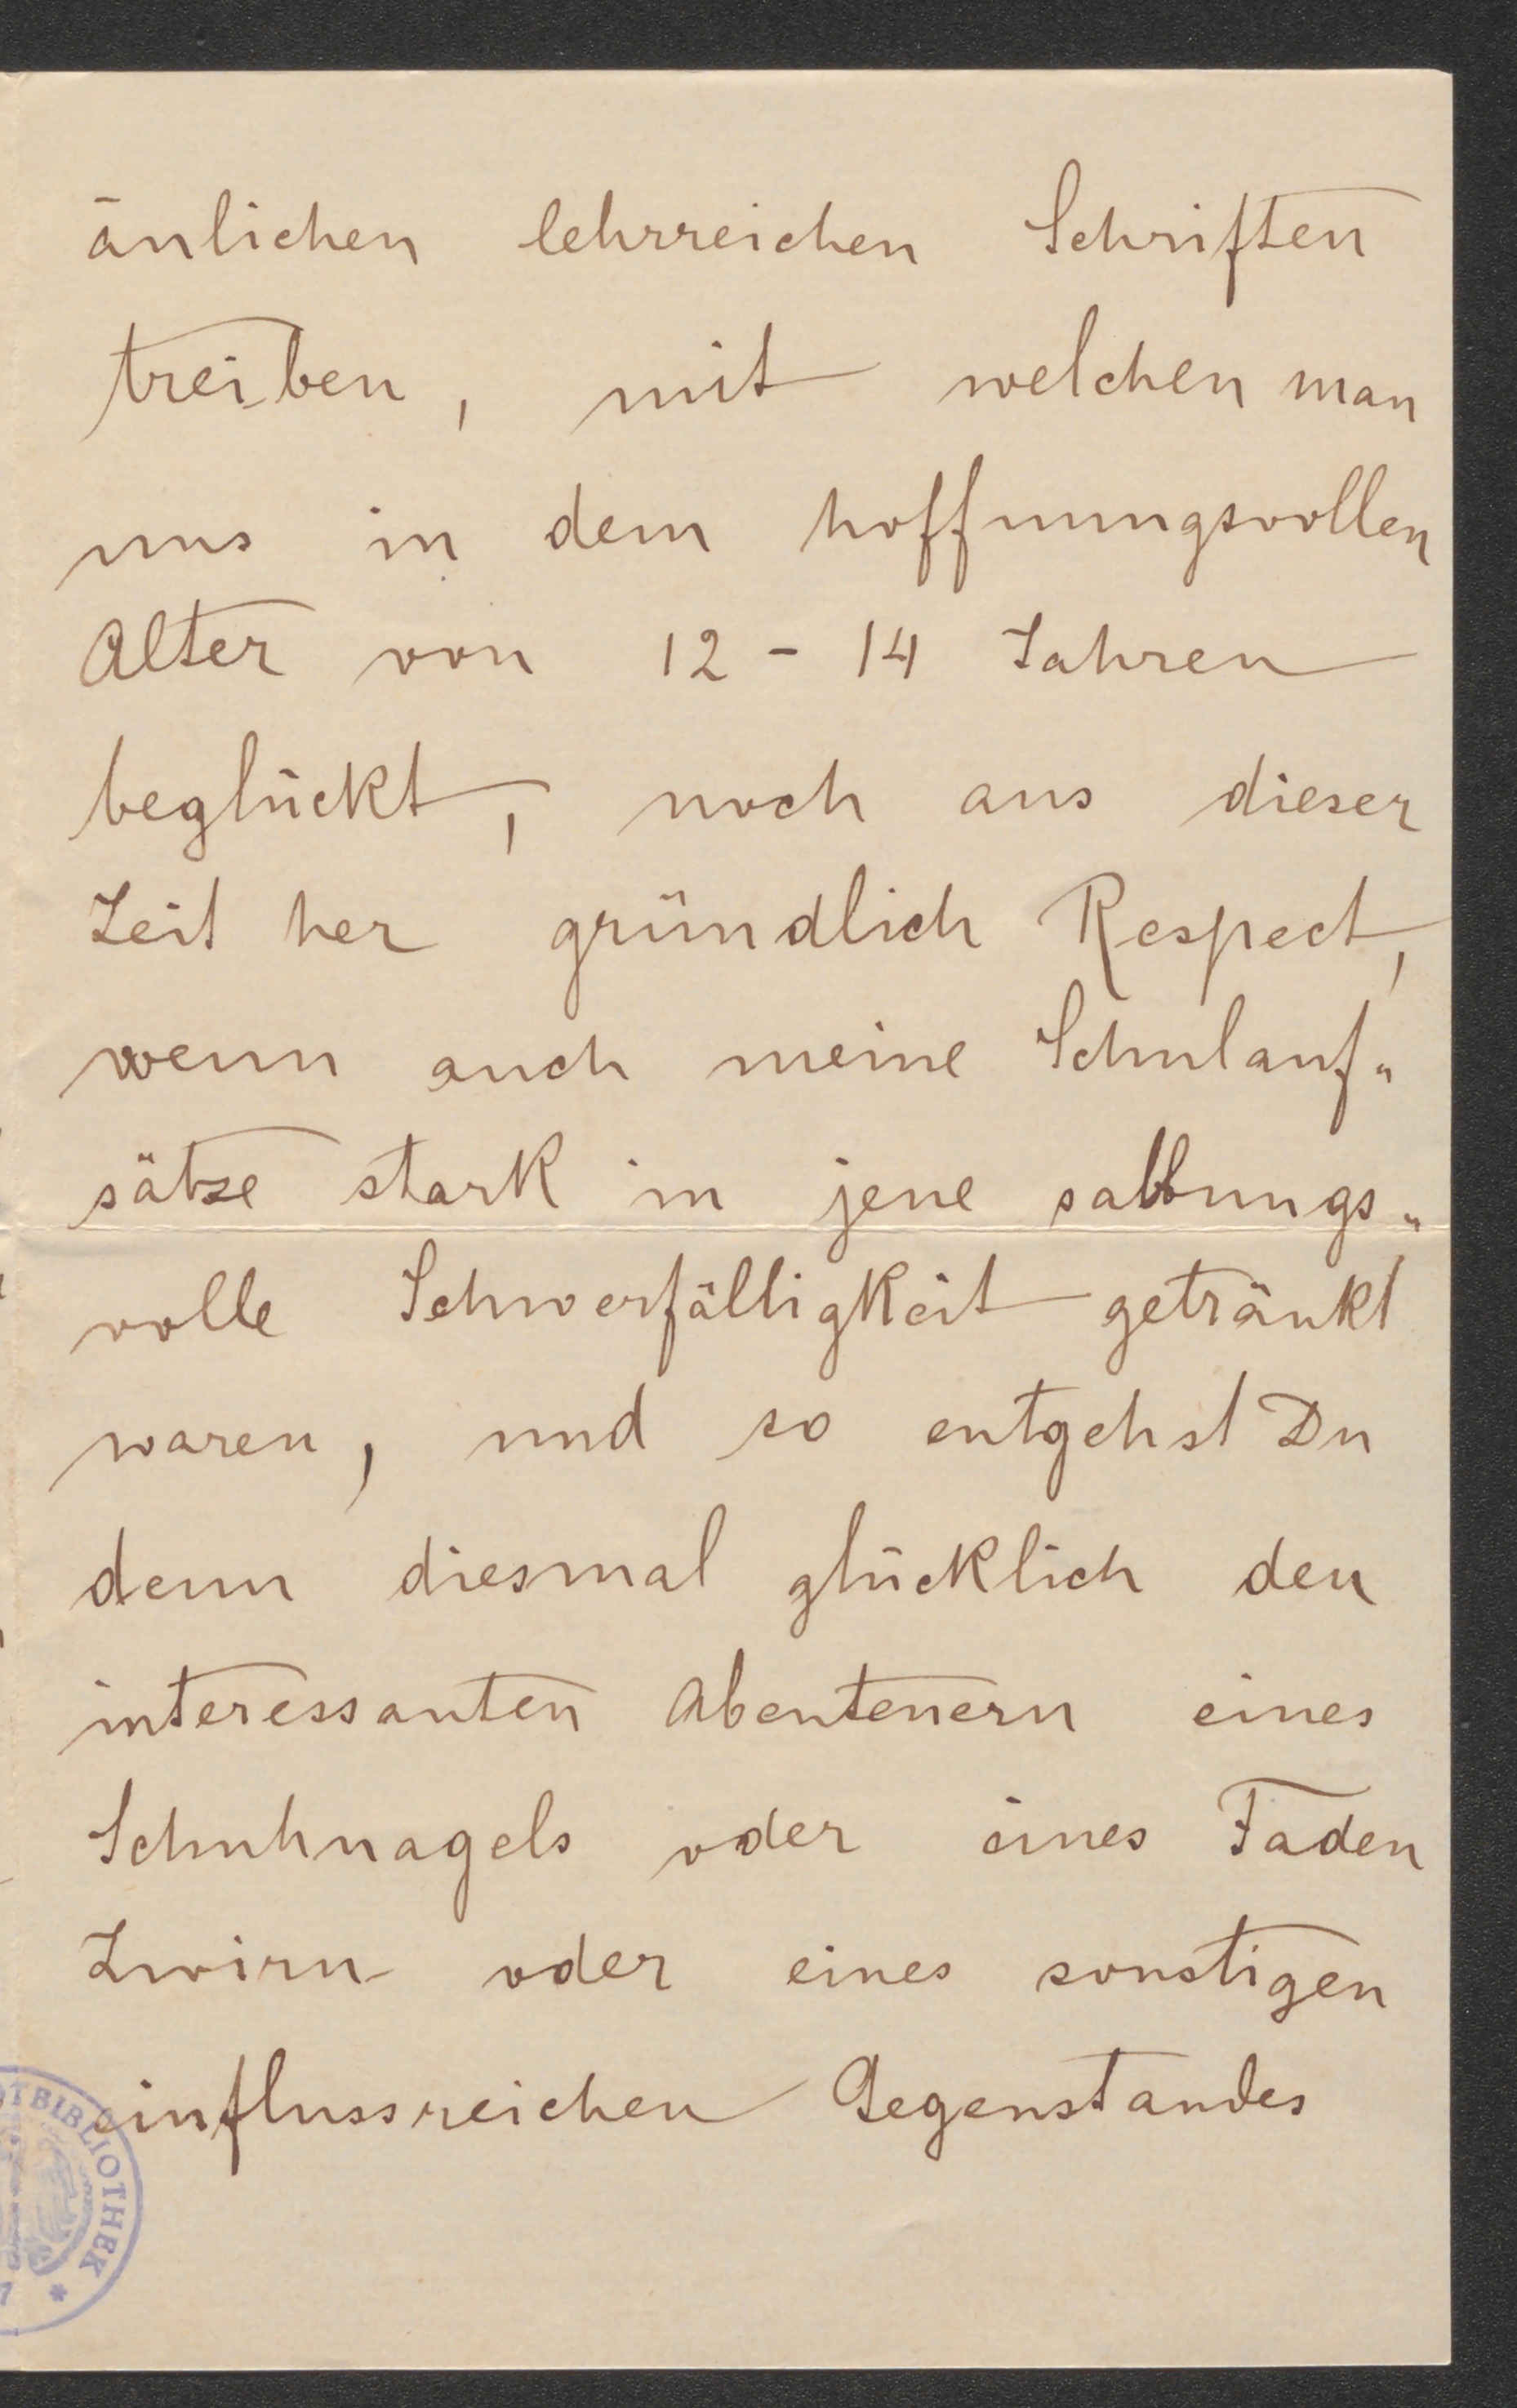 änlichen lehrreichen Schriften
treiben, mit welchen man
uns in dem hoffnungsvollen
Alter von 12 - 14 Jahren
beglückt, noch aus dieser
Zeit her gründlich Respect,
wenn auch meine Schulauf„
sätze stark in jene salbungs„
volle Schwerfälligkeit getränkt
waren, und so entgehst Du
denn diesmal glücklich den
interessanten Abenteuern eines
Schuhnagels oder eines Faden
Zwirn oder eines sonstigen
einflussreichen Gegenstandes
TBIBLIOTHEK
7 *